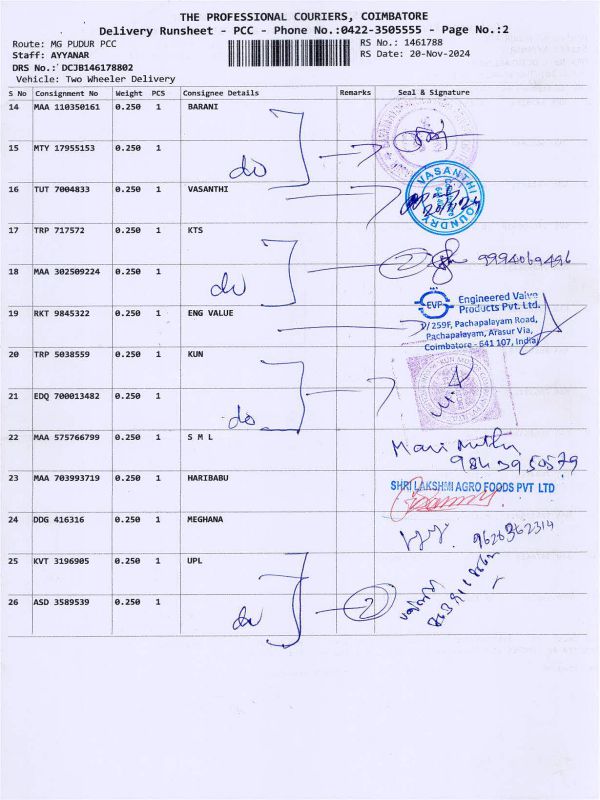 THE PROFESSIONAL COURIERS, COIMBATORE
Delivery Runsheet - PCC - Phone No.:0422-3505555 - Page No.:2
Route: MG PUDUR PCC
RS No.: 1461788
Staff: AYYANAR
RS Date: 20-Nov-2024
DRS No.: DCJB146178802
Vehicle: Two Wheeler Delivery
S No Consignment No Weight PCS Consignee Details Remarks Seal & Signature
14 MAA 110350161 0.250 1 BARANI
15 MTY 17955153 0.250 1
do
16 TUT 7004833 0.250 1 VASANTHI
VASANTHI FOUNDRY
17 TRP 717572 0.250 1 KTS
2 9994069496
18 MAA 302509224 0.250 1
do
19 RKT 9845322 0.250 1 ENG VALUE
EVP Engineered Valve
Products Pvt. Ltd.
1/259F, Pachapalayam Road,
Pachapalayam, Arasur Via,
Coimbatore - 641 107, India
20 TRP 5038559 0.250 1 KUN
21 EDQ 700013482 0.250 1
do
22 MAA 575766799 0.250 1 S M L
Mari Muthu
9843950579
23 MAA 703993719 0.250 1 HARIBABU
SHRI LAKSHMI AGRO FOODS PVT LTD
24 DDG 416316 0.250 1 MEGHANA
9626362314
25 KVT 3196905 0.250 1 UPL
26 ASD 3589539 0.250 1
do
2